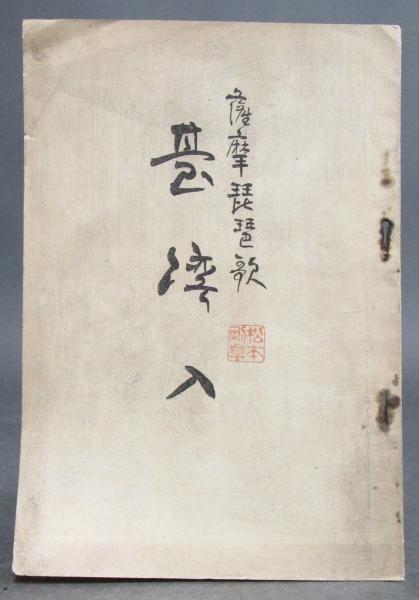 薩摩琵琶歌
臺湾入
松本